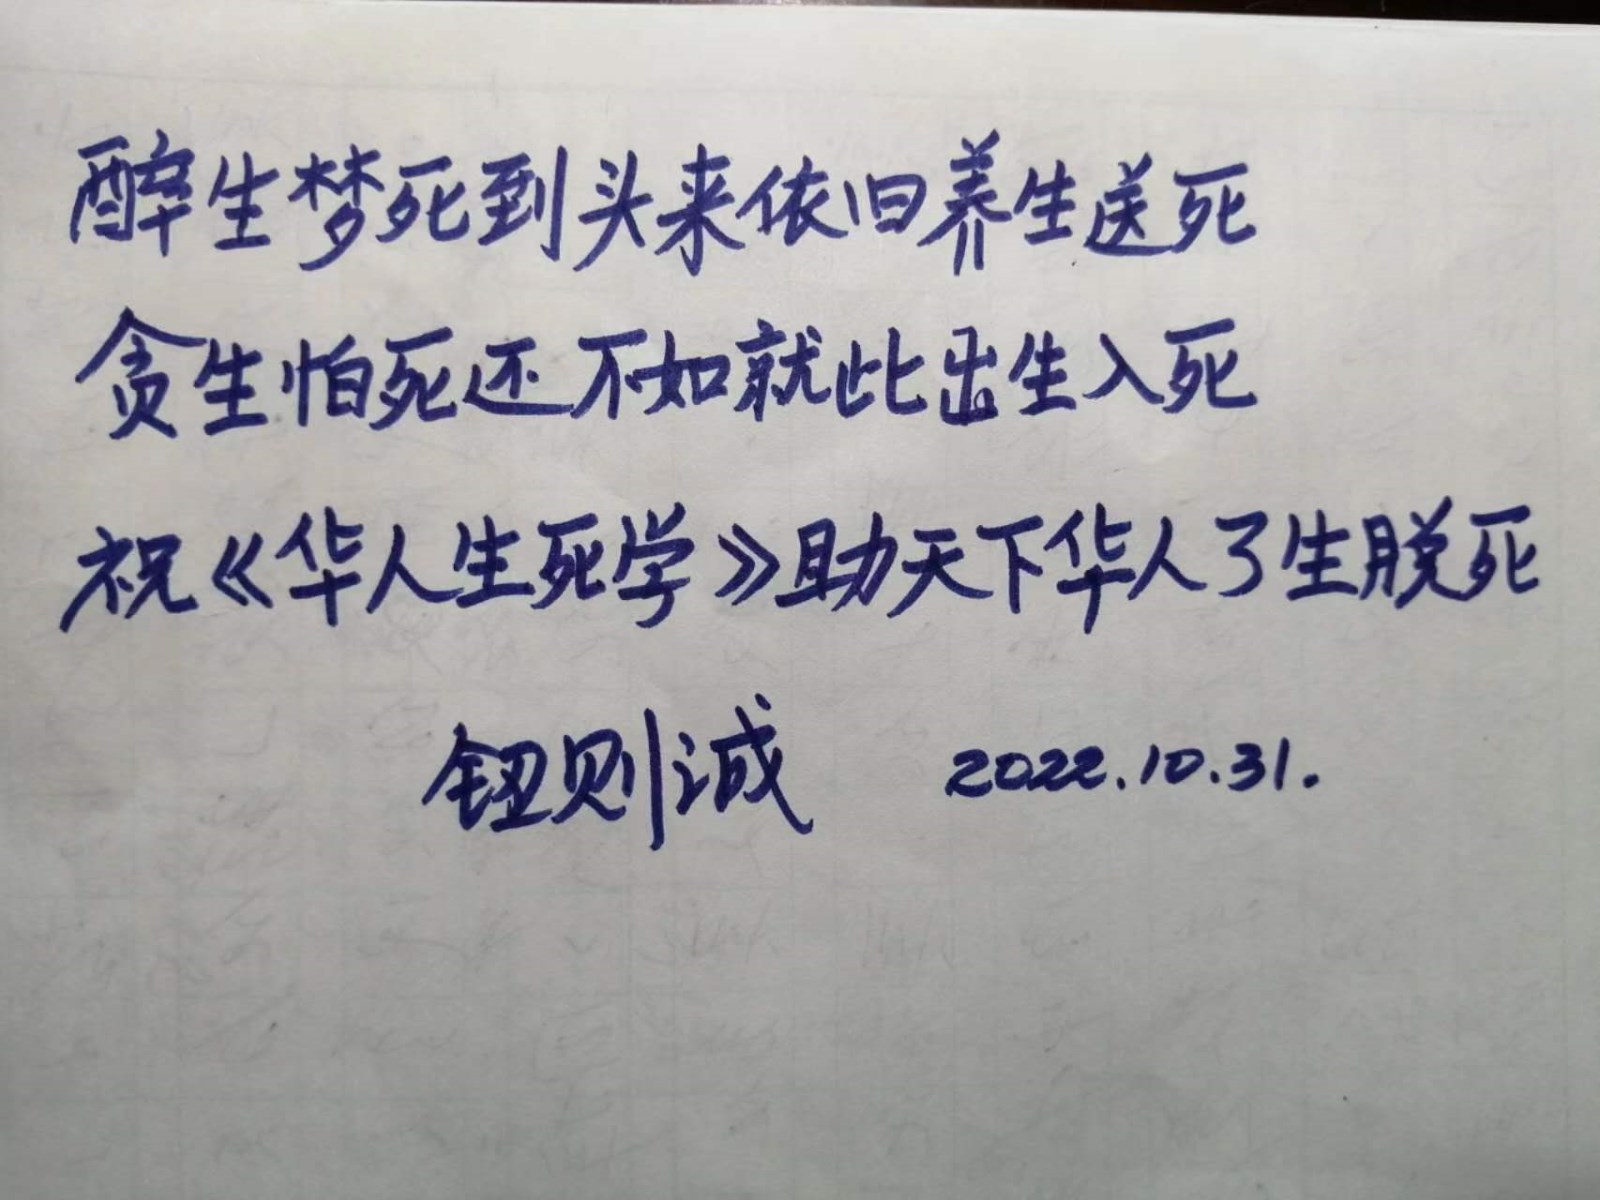 醉生梦死到头来依旧养生送死
贪生怕死还不如就此出生入死
祝《华人生死学》助天下华人了生脱死
钮则诚 2022.10.31.